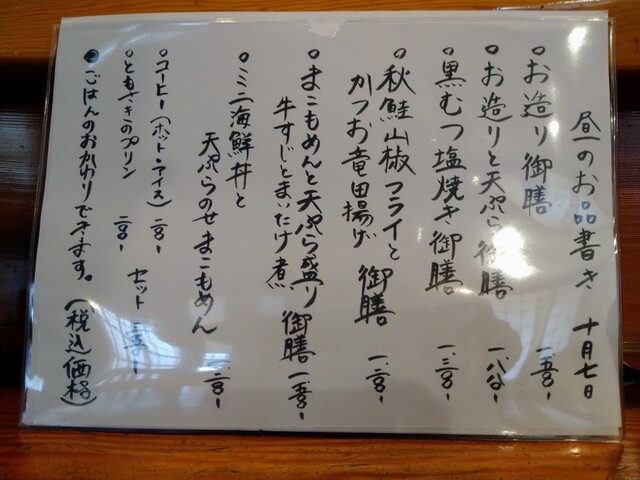 昼のお品書き 十月七日
○お造り御膳 一、五〇〇-
○お造りと天ぷら御膳 一、八〇〇-
○黒むつ塩焼き御膳 一、三〇〇-
○秋鮭山椒フライと
かつお竜田揚げ 御膳 一、二〇〇-
○まこもめんと天ぷら盛り
牛すじとまいたけ煮 御膳 一、五〇〇-
○ミニ海鮮丼と
天ぷらのせまこもめん 一、二〇〇-
○コーヒー(ホット・アイス) 二〇〇-
○ともすきのプリン 二〇〇- セット 三五〇-
●ごはんのおかわりできます。(税込価格)